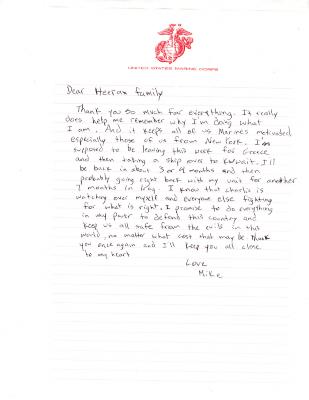 UNITED STATES MARINE CORPS
Dear Heeran family
Thank you so much for everything. It really
does help me remember why I'm doing what
I am. And it keeps all of us Marines motivated
especially those of us from New York. I'm
supposed to be leaving this week for Greece
and then taking a ship over to Kuwait. I'll
be back in about 3 or 4 months and then
probably going right back with my unit for another
7 months in Iraq. I know that charlie is
watching over myself and everyone else fighting
for what is right. I promise to do everything
in my power to defend this country and
keep us all safe from the evils in this
world, no matter what cost that may be. Thank
you once again and I'll keep you all close
to my heart
Love
Mike